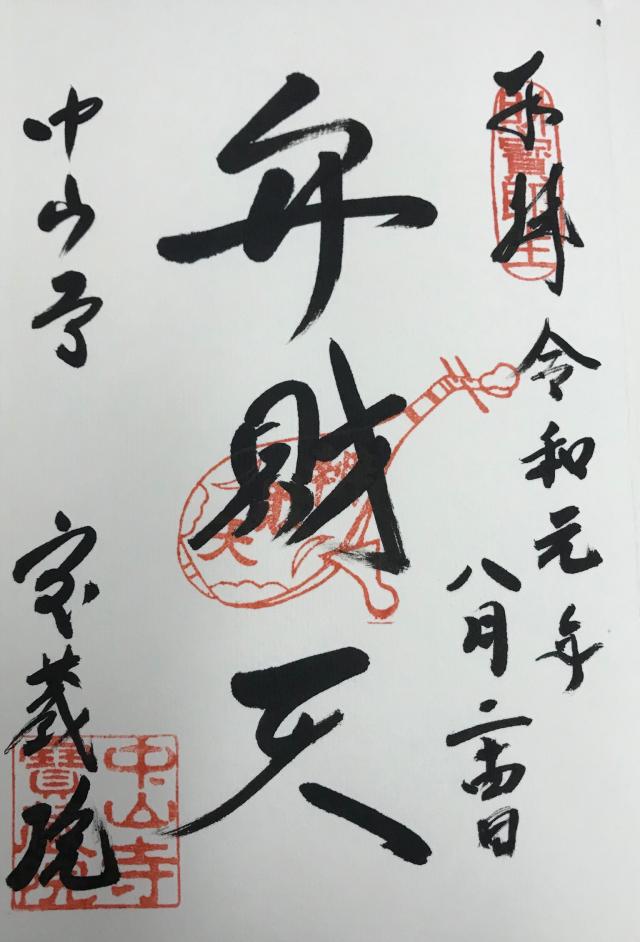 奉拝
令和元年
八月二十四日
弁財天
中山寺
宝蔵院
中山寺